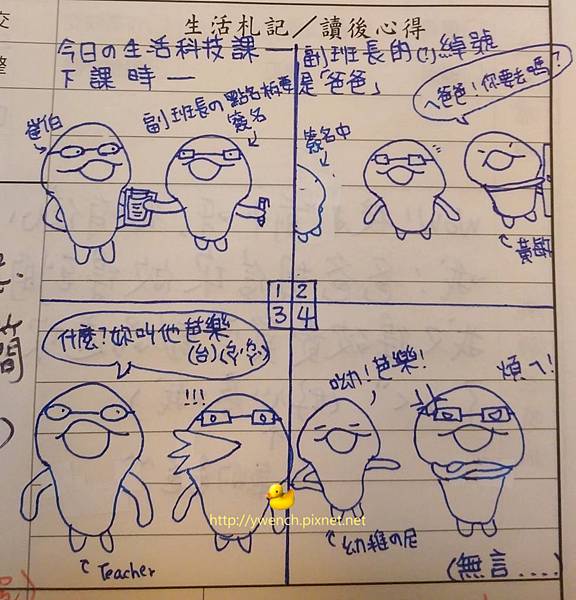 交
整
生活札記／讀後心得
今日の生活科技課—
下課時—
崔伯
副班長の點名板要
簽名
副班長的(?)綽號
是「爸爸」
簽名中
ㄟ爸爸！你要去嗎？
黃敏
1 2
3 4
什麼？妳叫他芭樂
(台)
!!!
Teacher
呦！芭樂！
煩ㄟ！
幼稚の尼
(無言....
簡
http://ywench.pixnet.net